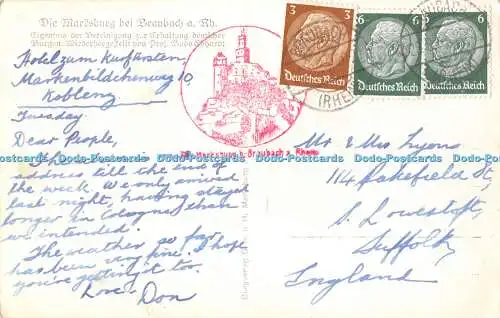 Die Marksburg bei Braubach a. Rh.
Eigentum der Vereinigung zur Erhaltung deutscher
Burgen. Wiederhergestellt von Prof. Bodo Ebhardt
Hotel zum Kurfürsten
Markenbildchenweg 10,
Koblenz
Tuesday
Dear People,
This will be our
address till the end of
the week. We only arrived
last night, having stayed
longer in Cologne than
we intended.
The weather so far
has been very fine. I hope
you're getting it too.
Love - Don
Die Marksburg b. Braubach a. Rhein
3 3
Deutsches Reich
6 6
Deutsches Reich
6 6
Deutsches Reich
(RHEIN)
Mr & Mrs Lyons
114 Pakefield St,
S. Lowestoft,
Suffolk,
England
Dodo-Postcards Dodo-Postcards Dodo-Postcards Dodo-Postcards Dodo-Postcards